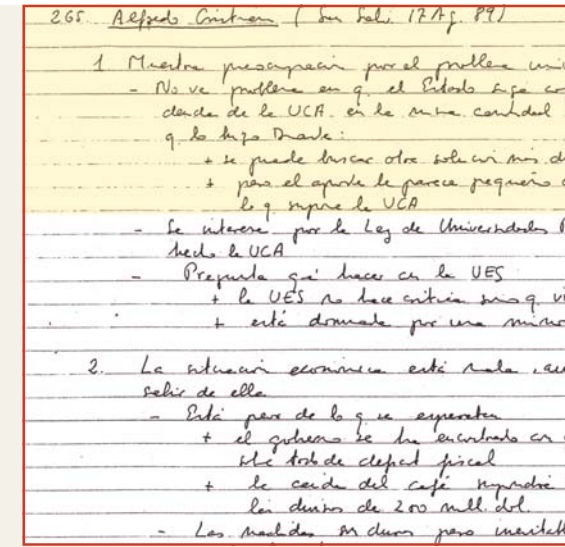 265. Alfredo Cristiani (San Salv. 17 Ag. 89)
1 Muestra preocupación por el problema univ
- No ve problema en q. el Estado siga con
deuda de la UCA en la misma cantidad
q. lo hizo Duarte:
+ se puede buscar otra solución más d
+ pero el aporte le parece pequeño
lo q. supone la UCA
- Se interesa por la Ley de Universidades P
hecho la UCA
- Pregunta qué hacer con la UES
+ la UES no hace crítica sino q. vi
+ está dominada por una minor
2. La situación económica está mala,
salir de ella
- Está peor de lo q. se esperaba
+ el gobierno se ha encontrado con
de deficit fiscal
+ la caída del café supondrá
de 200 mill. dol.
- Las medidas son duras pero inevitabl